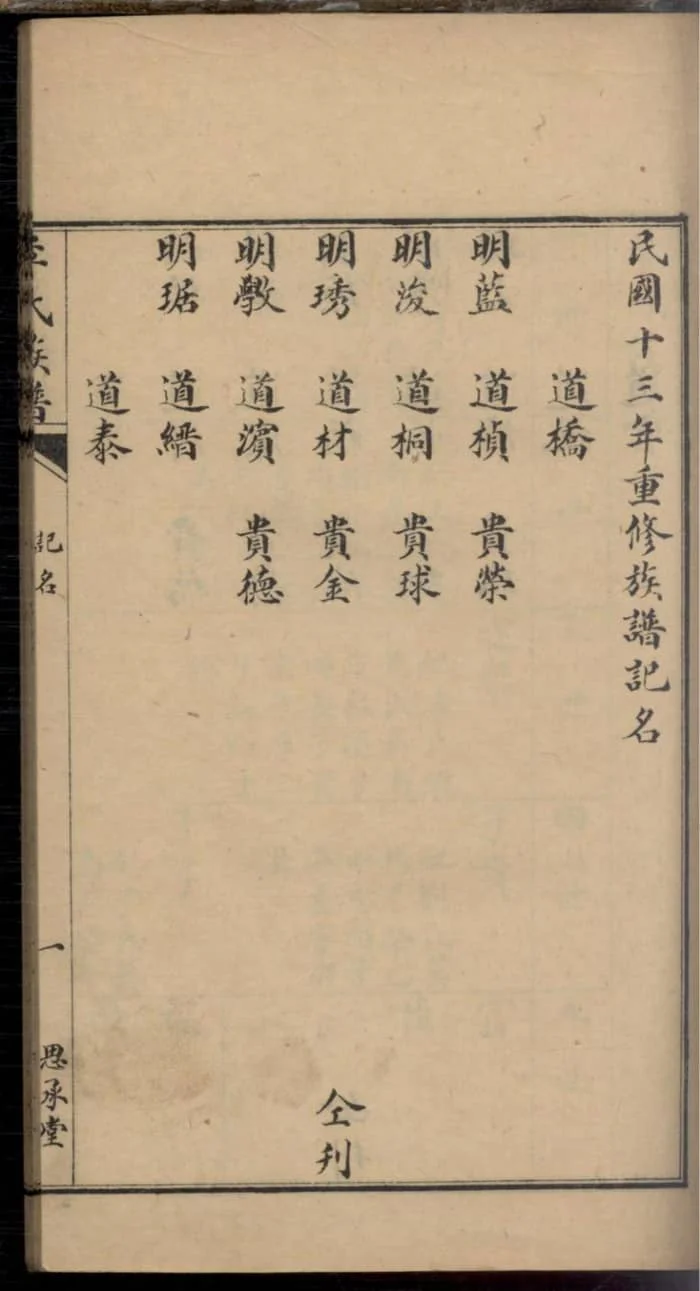 民國十三年重修族譜記名
道橋
明藍 道楨 貴榮
明浚 道桐 貴球
明琇 道材 貴金 仝刊
明斆 道濱 貴德
明琚 道縉
道泰
氏族譜 記名 一 思承堂